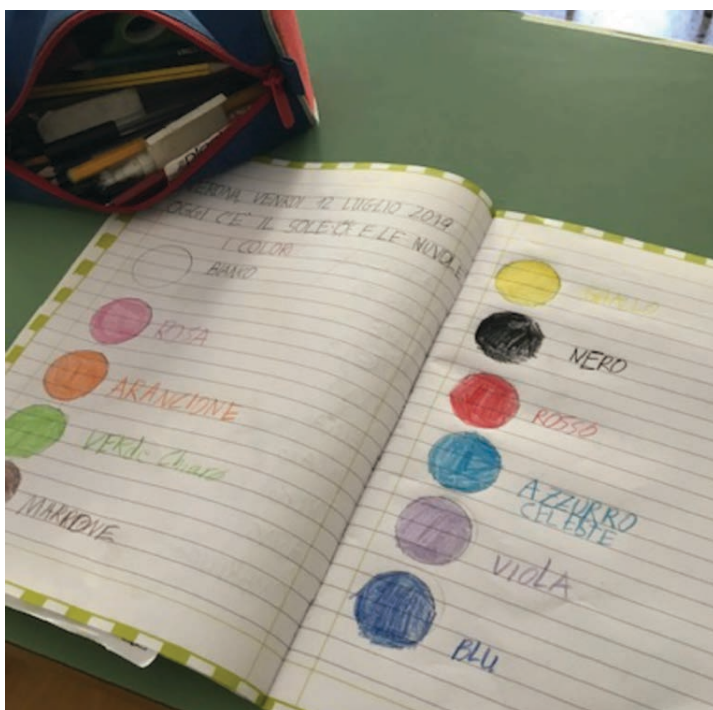 VERONA, VENRDI 12 LUGLIO 2019
OGGI C'È IL SOLE E LE NUVOLE
I COLORI
BIANCO
ROSA
ARANCIONE
VERDE Chiaro
MARRONE
GIALLO
NERO
ROSSO
AZZURRO
CELESTE
VIOLA
BLU